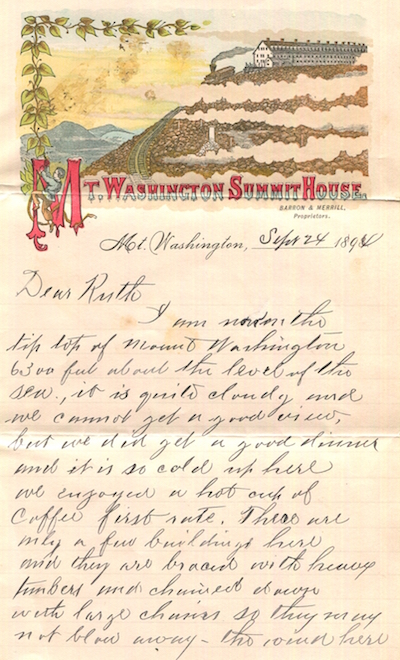 MT. WASHINGTON SUMMIT HOUSE.
BARRON & MERRILL,
Proprietors.
Mt. Washington, Sept 24 1894
Dear Ruth
I am now on the
tip top of Mount Washington
6300 feet about the level of the
sea., it is quite cloudy and
we cannot get a good view,
but we did get a good dinner
and it is so cold up here
we engoyed a hot cup of
Coffee first rate. There are
only a few buildings here
and they are braced with heavy
timbers and chained down
with large chains so they may
not blow away - the wind here